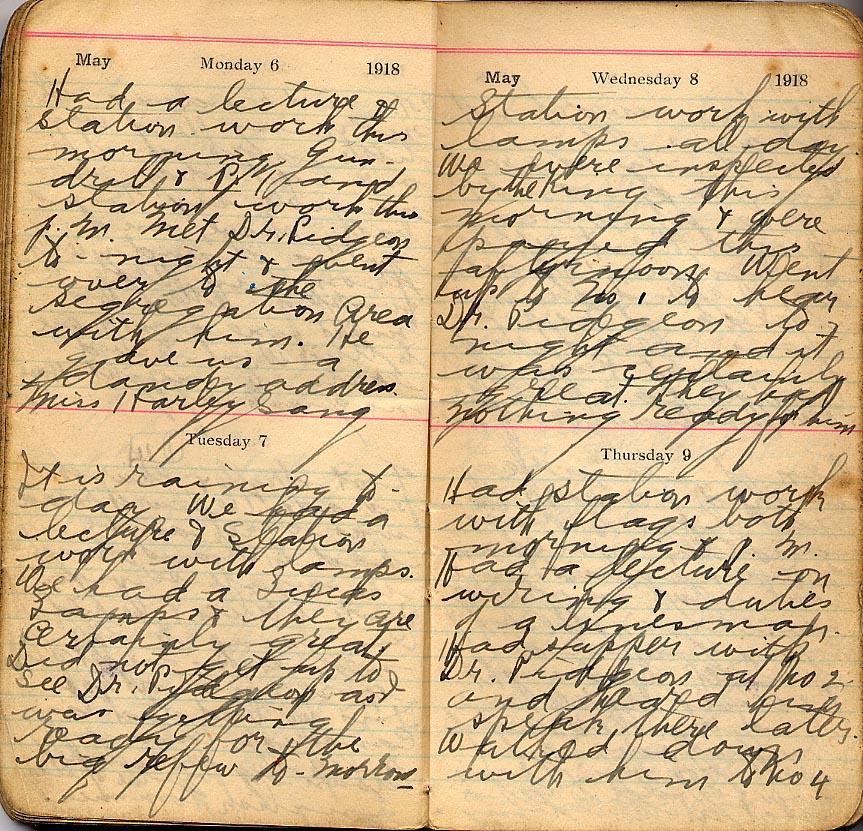 May Monday 6 1918
Had a lecture &
station work this
morning, Gun-
drill & P.T. and
station work this
p.m. Met Dr. Pidgeon
to-night & went
over to the
Segregation Area
with him. He
gave us a
dandy address.
Miss Harley Sang
Tuesday 7
It is raining to-
day. We had a
lecture & Station
work with lamps.
We had a
Lamps & they are
certainly great.
Did not get up to
see Dr. Pidgeon as I
was getting
ready for the
big review to-morrow
May Wednesday 8 1918
Station work with
lamps all day
We were inspected
by the King this
morning & were
this
afternoon. Went
up to No. 1 to hear
Dr. Pidgeon to-
night and it
was certainly
great. They had
nothing ready for him
Thursday 9
Had station work
with flags both
morning & p.m.
Had a lecture on
wiring & duties
of a linesman.
Had supper with
Dr. Pidgeon at No 2
and heard him
speak there later.
Walked down
with him to No 4